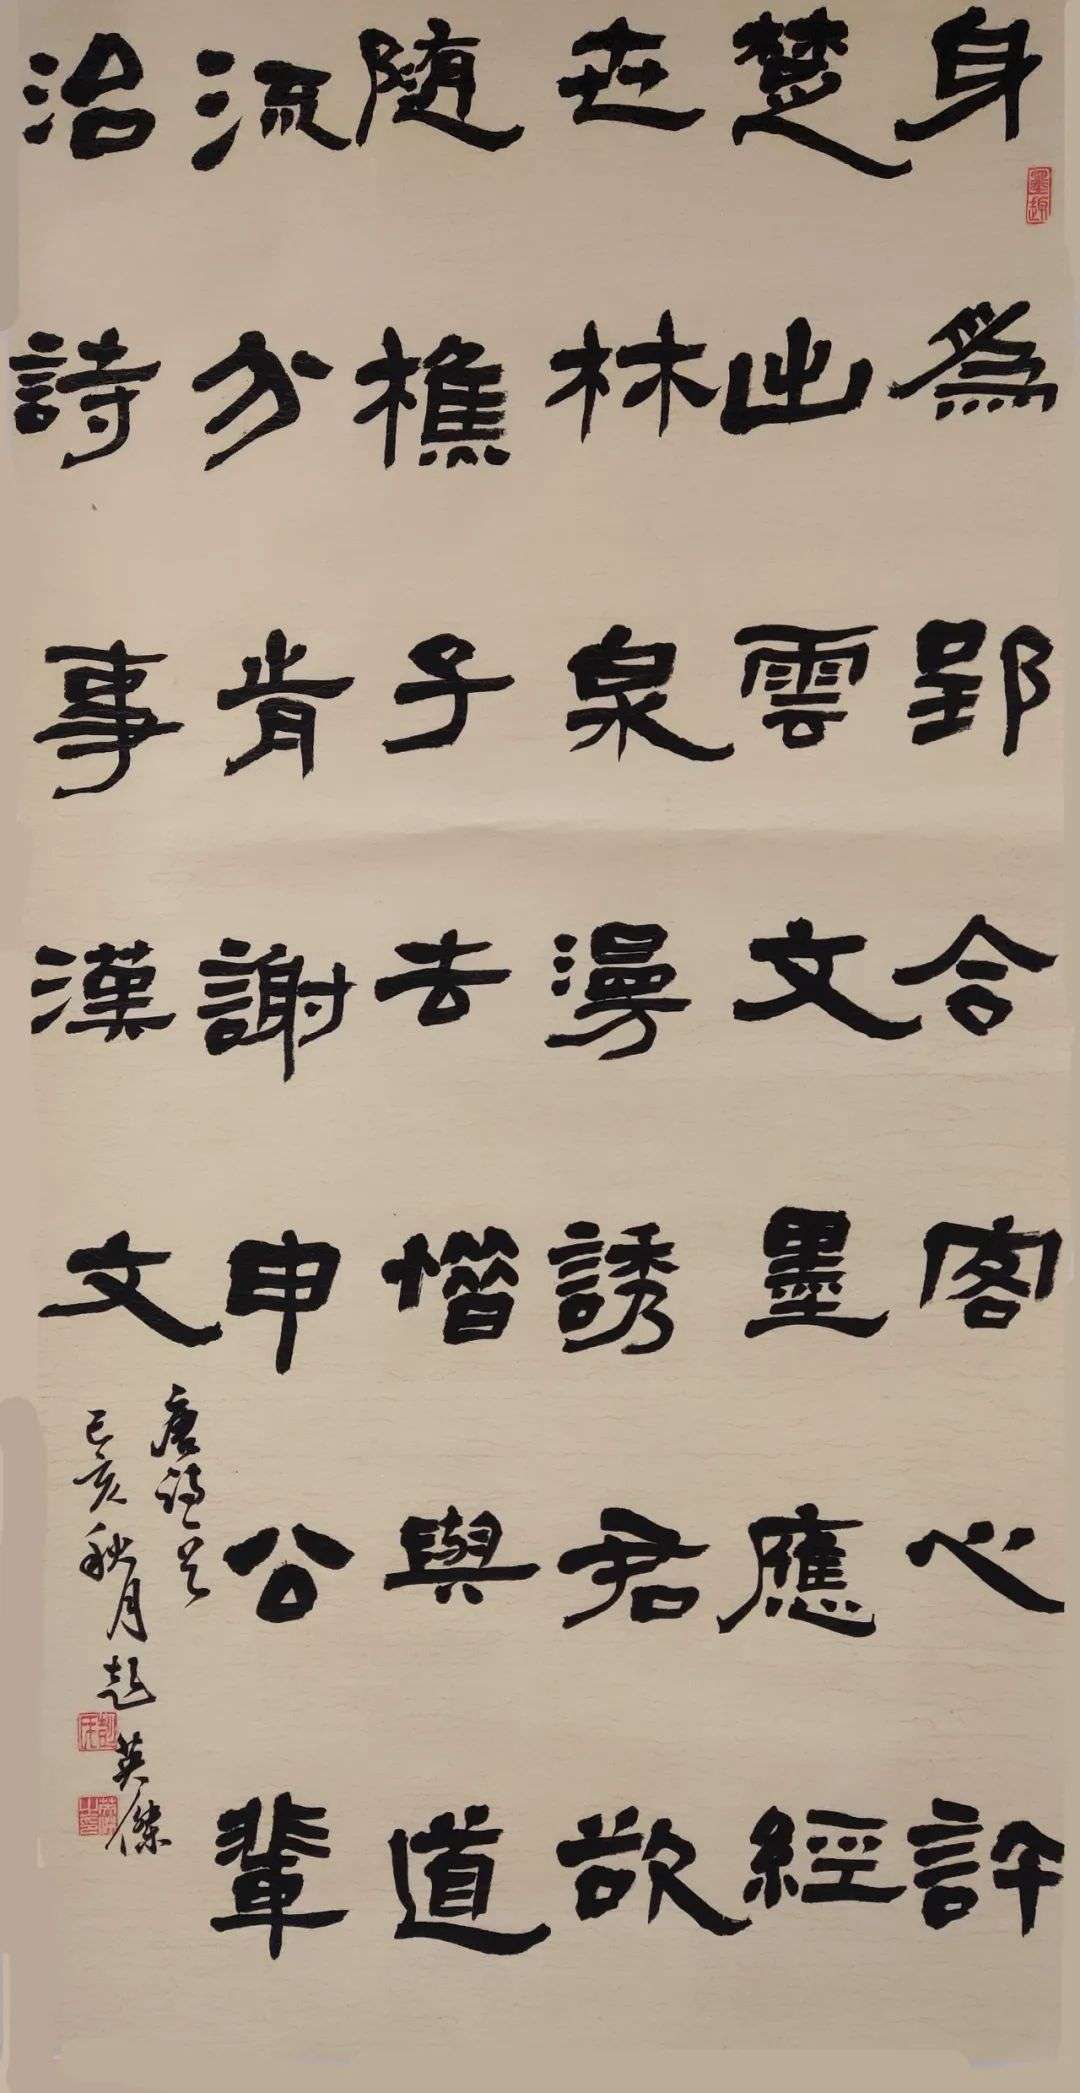 身為郢合客心許
楚出雲文墨應經
世林泉漫誘君欲
隨樵子去惜與道
流分肯謝申公輩
治詩事漢文
唐詩一首
己亥秋月趙英傑
墨趣